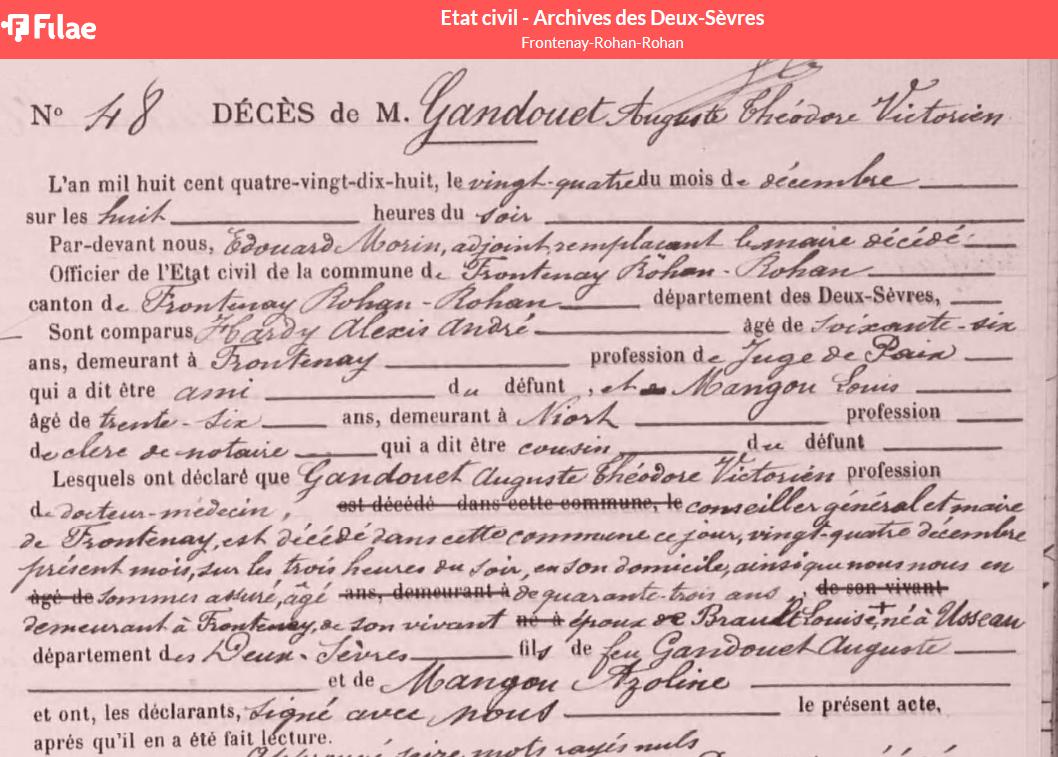 Filae
Etat civil - Archives des Deux-Sèvres
Frontenay-Rohan-Rohan
Nº 48 DÉCÈS de M. Gandouet Auguste Théodore Victorien
L'an mil huit cent quatre-vingt-dix-huit, le vingt-quatre du mois de décembre
sur les huit heures du soir
Par-devant nous, Edouard Morin, adjoint, remplaçant le maire décédé
Officier de l'Etat civil de la commune de Frontenay Rohan-Rohan
canton de Frontenay Rohan-Rohan département des Deux-Sèvres,
Sont comparus Hardy Alexis André âgé de soixante-six
ans, demeurant à Frontenay profession de Juge de Paix
qui a dit être ami du défunt, et Mangou Louis
âgé de trente-six ans, demeurant à Niort profession
de clerc de notaire qui a dit être cousin du défunt
Lesquels ont déclaré que Gandouet Auguste Théodore Victorien profession
de docteur-médecin, est décédé dans cette commune, le conseiller général et maire
de Frontenay, est décédé dans cette commune ce jour, vingt-quatre décembre
présent mois, sur les trois heures du soir, en son domicile, ainsi que nous nous en
âgé de sommes assuré, âgé ans, demeurant à de quarante-trois ans, de son vivant
demeurant à Frontenay, de son vivant né à époux de Louise, né à Usseau
département des Deux-Sèvres fils de feu Gandouet Auguste
et de Mangou Azoline
et ont, les déclarants, signé avec nous le présent acte,
aprés qu'il en a été fait lecture.
mots rayés nuls